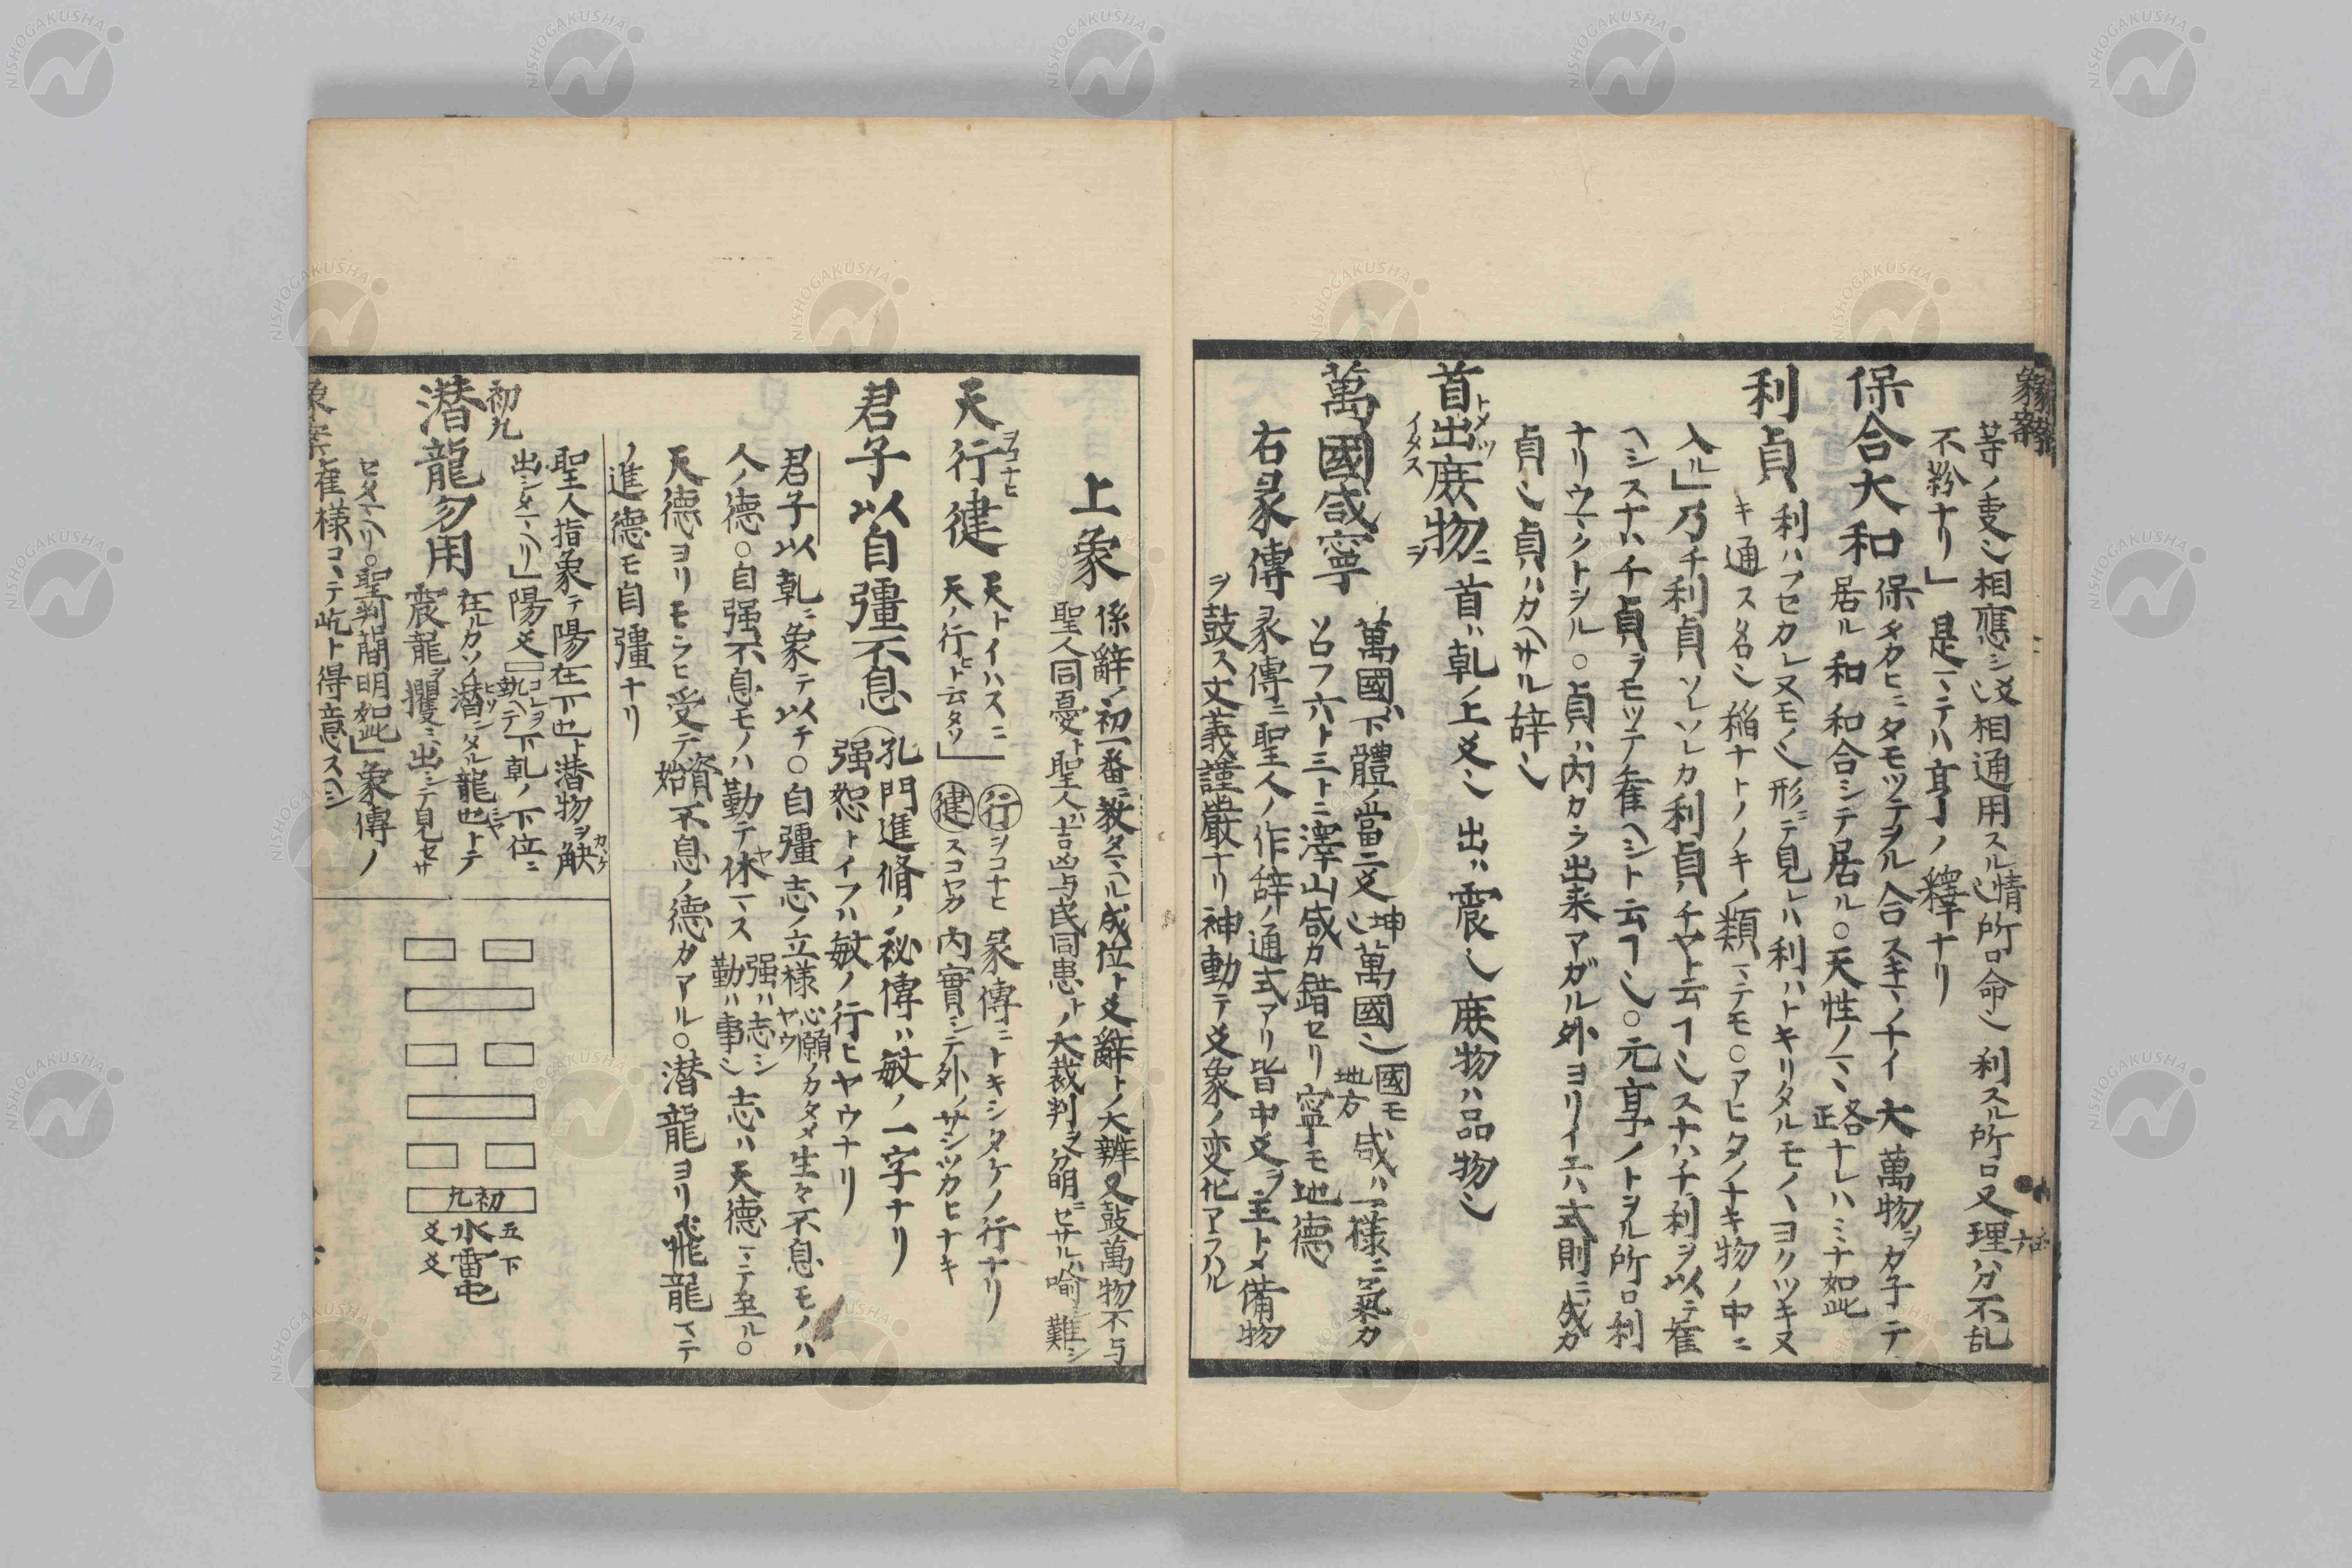 等ノ叓〆相應シ〆相通用スル情〆所口命〆利スル所口又理ハ分不乱
不紛ナリ」是マテハ亨ノ釋ナリ
保合大和
保メカヒニタモツテヲル合スキマノナイ大萬物ヲカ子テ
居ル和和合シテ居ル○天性ノマヽ
正路ナレハミナ如此
利貞
利ハフセカレ又モノ〆形デ見レハ利ハトキリタルモノハヨクツキヌ
キ通ス名〆稲ナトノノキノ類マテモ○アヒタノナキ物ノ中ニ
入ル」乃チ利貞ソレソレカ利貞チヤト云フ〆スナハチ利ヲ以テ隺
ヘシスナハチ貞ヲモツテ隺ヘシト云フ〆○元亨ノトヲル所口利
ナリウコクトシル○貞ハ内カラ出来マガル外ヨリイエハ式則ニ成カ
貞〆貞ハカヘサル辞〆
首出庻物
トメツ
イタス
ニ
ヲ
首ハ乹ノ上爻〆出ハ震〆庻物ハ品物〆
萬國咸寧
萬國ハ下體ノ當二爻〆
坤
萬國〆
國モ
地方
咸ハ一様ニ氣カ
ソロフ六ト三トニ澤山咸カ錯セリ寧モ地德
右彖傳
彖傳ニ聖人ノ作辞ノ通式アリ皆中爻ヲ主トメ備物
ヲ鼓ス文義謹嚴ナリ神動テ爻象ノ変化アラハル
上象
係辭ノ初一番ニ教タマヘル成位ト爻辭トノ大辨又鼓萬物不与
聖人同憂ト聖人ハ吉凶与民同患トノ大裁判ヲ分明ニセサルハ喻シ難シ
天行健
ヲコナヒ
天トイハスニ
天ノ行ヒト云タリ」
行
ヲコナヒ
彖傳ニトキシタケノ行ナリ
健
スコヤカ
内實シテ外ノサシツカヒナキ
君子以自彊不息
孔門進脩ノ秘傳ハ敏ノ一字ナリ
强恕トイフハ敏ノ行ヒヤウナリ
君子以乹ニ象テ以テ○自彊志ノ立様
ヤウ
心願ノカタメ生々不息モノハ
人ノ德○自强不息モノハ勤テ休マス
ヤ
强ハ志〆
勤ハ事〆
志ハ天德マテ至ル○
天德ヨリモラヒ受テ
資
始
不息ノ德カアル○潜龍ヨリ飛龍マテ
ノ進德モ自彊ナリ
聖人指象テ陽在下也ト潜物ヲ觖
カケ
出シタマヘリ」陽爻
コレヲ
執ヘテ
下乹ノ下位ニ
初九
潜龍勿用
在ルカソイ潜ンタル龍也トテ
ヒソ
震龍ヲ攫ミ出シテ見セサ
セタマヘリ○聖判簡明如此」象傳ノ
隺様コヽテ屹ト得意スヘシ
初九
五下
水雷屯
爻爻